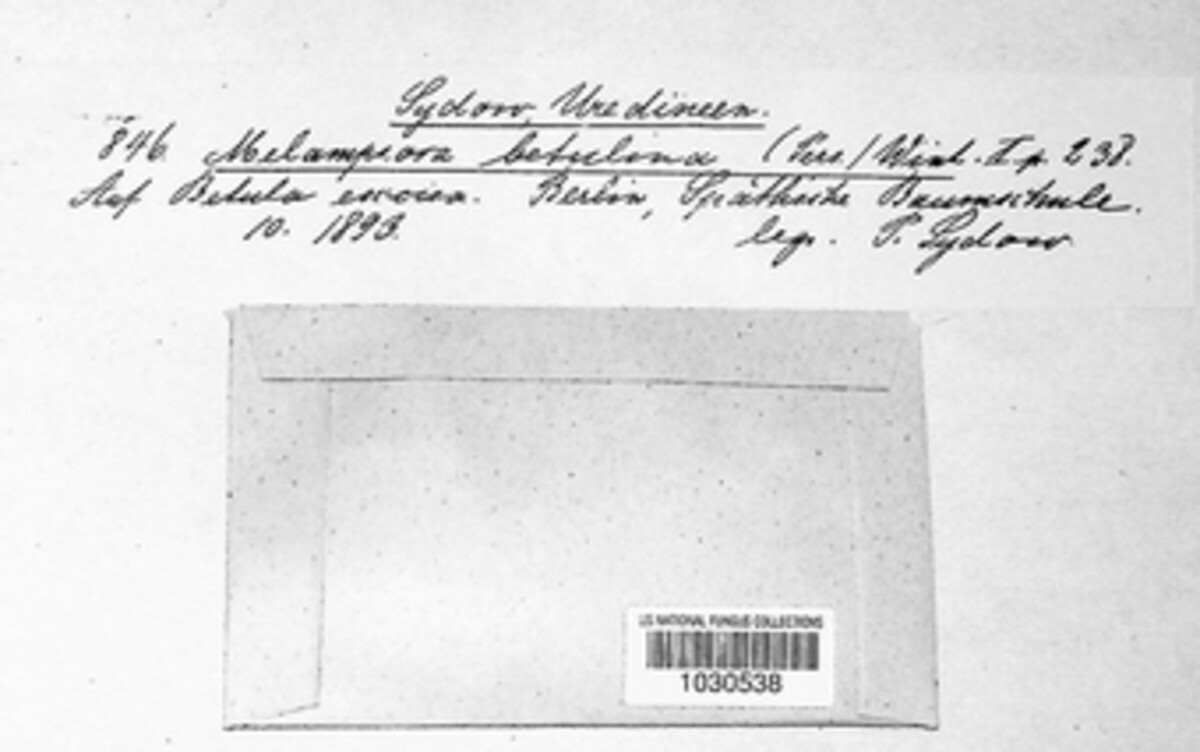 Sydow, Uredineen.
846. Melampsora betulina (Pers.) Wint. I p. 238.
Auf Betula excisa. Berlin, Späthsche Baumschule.
10. 1893. leg. P. Sydow
US NATIONAL FUNGUS COLLECTIONS
1030538